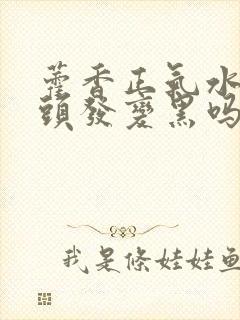 藿香正氣水
頭發變黑嗎
我是條娃娃魚